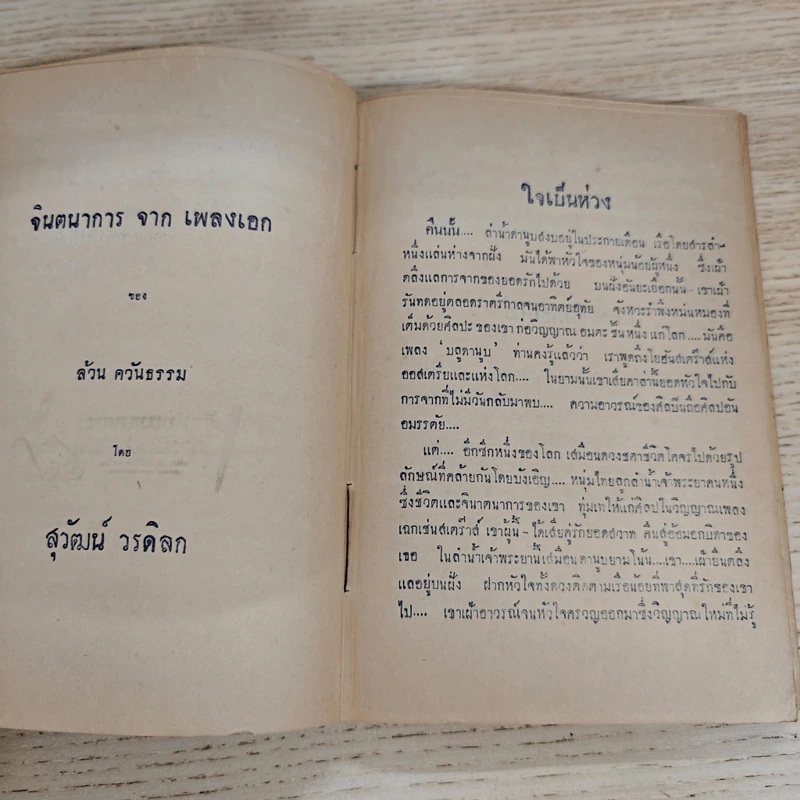 จินตนาการ จาก เพลงเอก
ของ
ล้วน ควันธรรม
โดย
สุวัฒน์ วรดิลก
ใจเป็นห่วง
คืนนั้น.... ลำน้ำดานูบสงบอยู่ในประกายเดือน เรือโดยสารลำ
หนึ่งแล่นห่างจากฝั่ง มันได้พาหัวใจของหนุ่มน้อยผู้หนึ่ง ซึ่งเฝ้า
ตลึงแลการจากของยอดรักไปด้วย บนฝั่งอันยะเยือกนั้น-เขาเฝ้า
รันทดอยู่ตลอดราตรีกาลจนอาทิตย์อุทัย จังหวะรำพึงหม่นหมองที่
เต็มด้วยศิลปะของเขา ก่อวิญญาณ อมตะ ชิ้นหนึ่ง แก่โลก....มันคือ
เพลง 'บลูดานูบ' ท่านคงรู้แล้วว่า เราพูดถึงโยฮันสเตร๊าส์แห่ง
ออสเตรียและแห่งโลก.... ในยามนั้นเขาเสียดาล่ำยอดหัวใจไปกับ
การจากที่ไม่มีวันกลับมาพบ.... ความอาวรณ์ของศิลปินถือศิลปอัน
อมรรตัย....
แต่.... อีกซีกหนึ่งของโลก เสมือนดวงชตาชีวิตโคจรไปด้วยรูป
ลักษณ์ที่คล้ายกันโดยบังเอิญ.... หนุ่มไทยลูกลำน้ำเจ้าพระยาคนหนึ่ง
ซึ่งชีวิตและจินตนาการของเขา ทุ่มเทให้แก่ศิลปในวิญญาณเพลง
เฉกเช่นสเตร๊าส์ เขาผู้นี้-ได้เสียคู่รักยอดสวาท คืนสู่อ้อมอกบิดาของ
เธอ ในลำน้ำเจ้าพระยานี้เสมือนดานูบยามโน้น....เขา....เฝ้ายืนตลึง
แลอยู่บนฝั่ง ฝากหัวใจทั้งดวงติดตามเรือน้อยที่พาสุดที่รักของเขา
ไป.... เขาเฝ้าอาวรณ์จนหัวใจครวญออกมาซึ่งวิญญาณใหม่ที่ไม่รู้